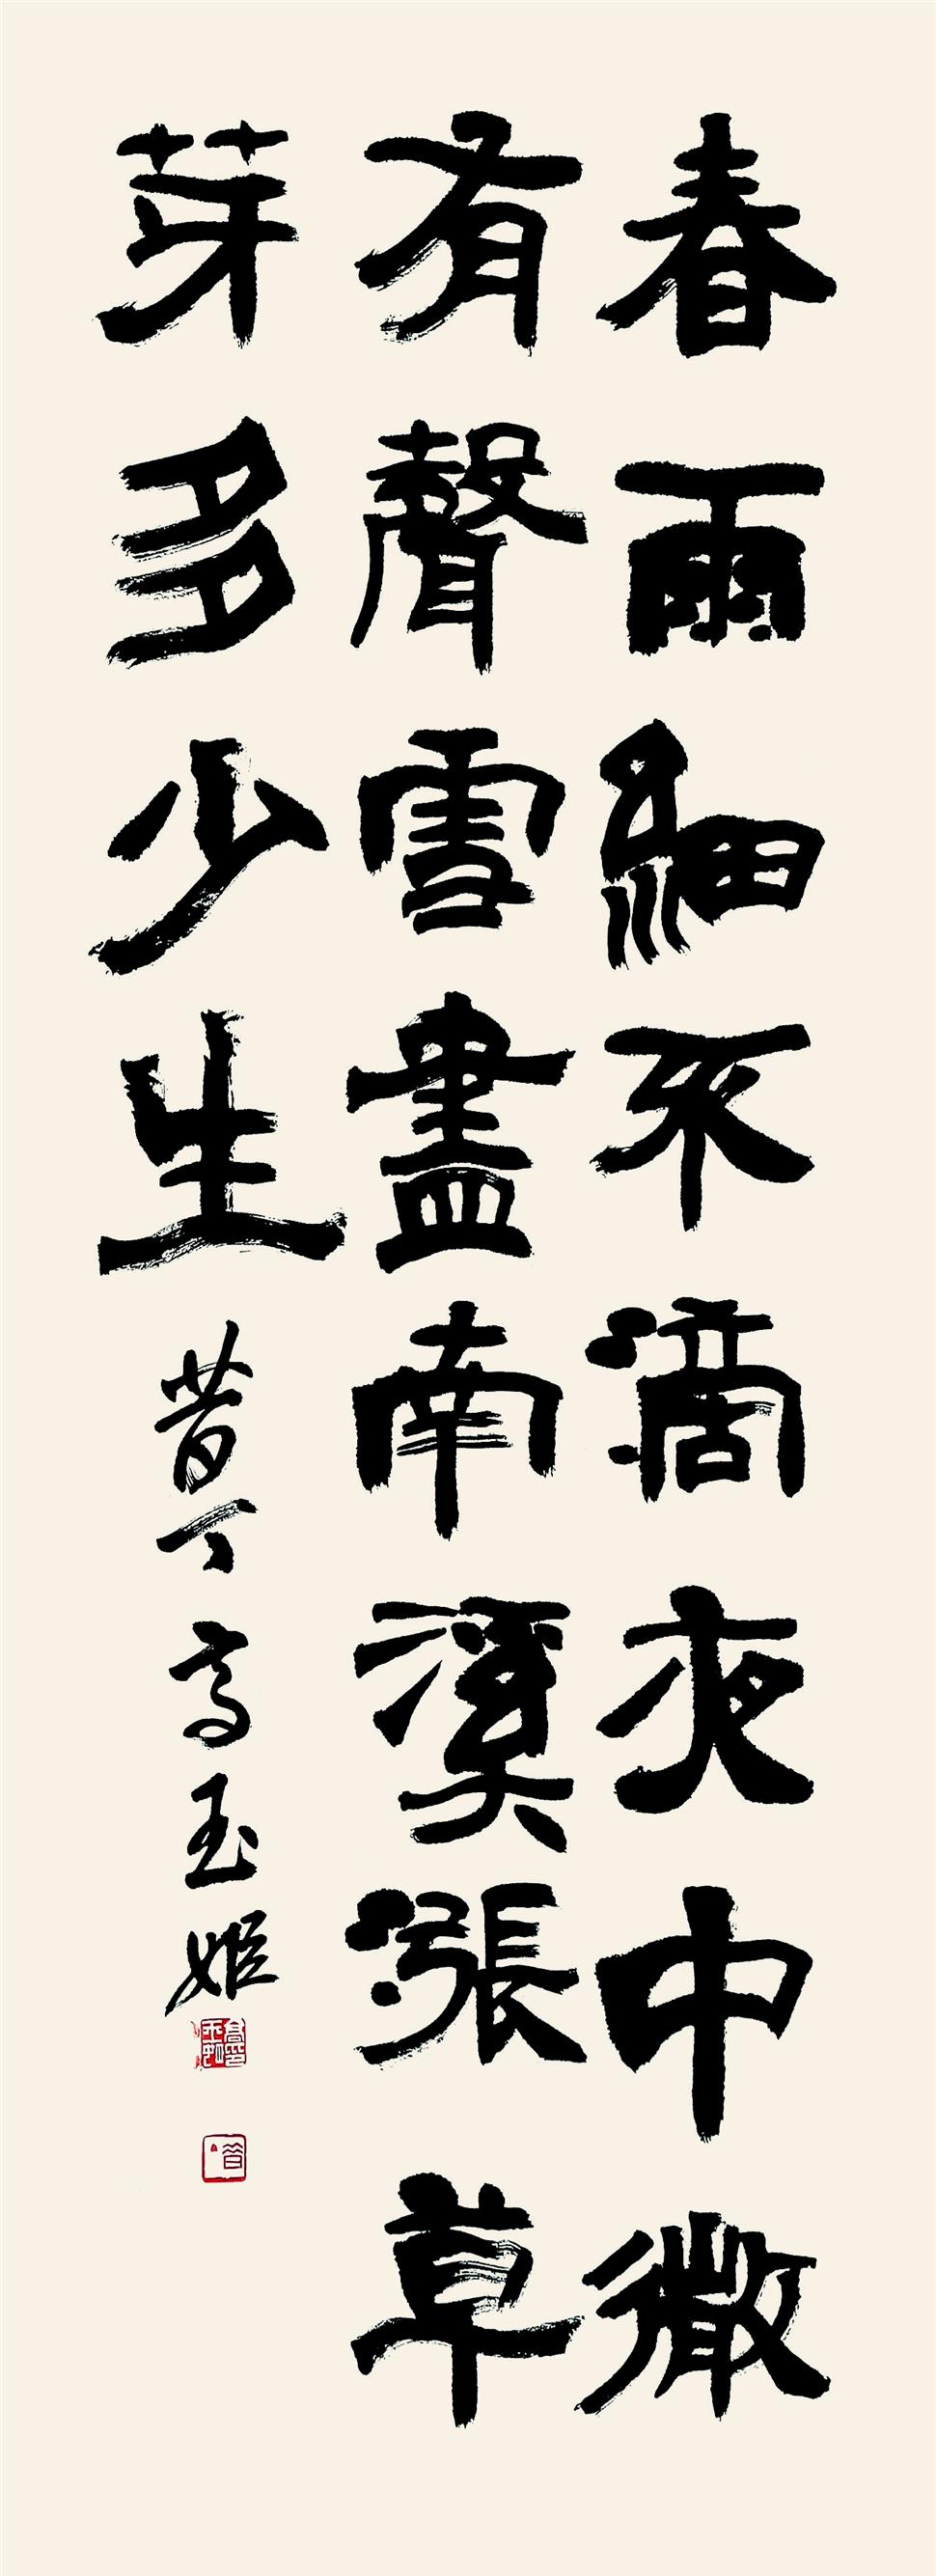 春雨細不滴夜中微
有聲雪盡南溪漲草
芽多少生 昔丁 高玉姬